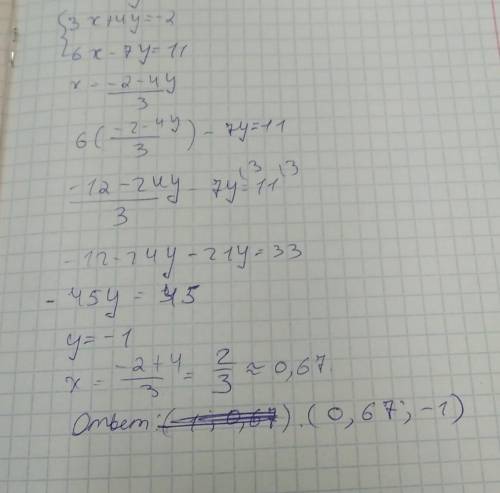 {3x+4y=-2
6x-7y=11
x=\frac{-2-4y}{3}
6(\frac{-2-4y}{3})-7y=11
\frac{-12-24y}{3}-7y^{(3}=11^{(3}
-12-24y-21y=33
-45y=45
y=-1
x=\frac{-2+4}{3}=\frac{2}{3}≈0,67
Ответ: (-1; 0,67). (0,67; -1)